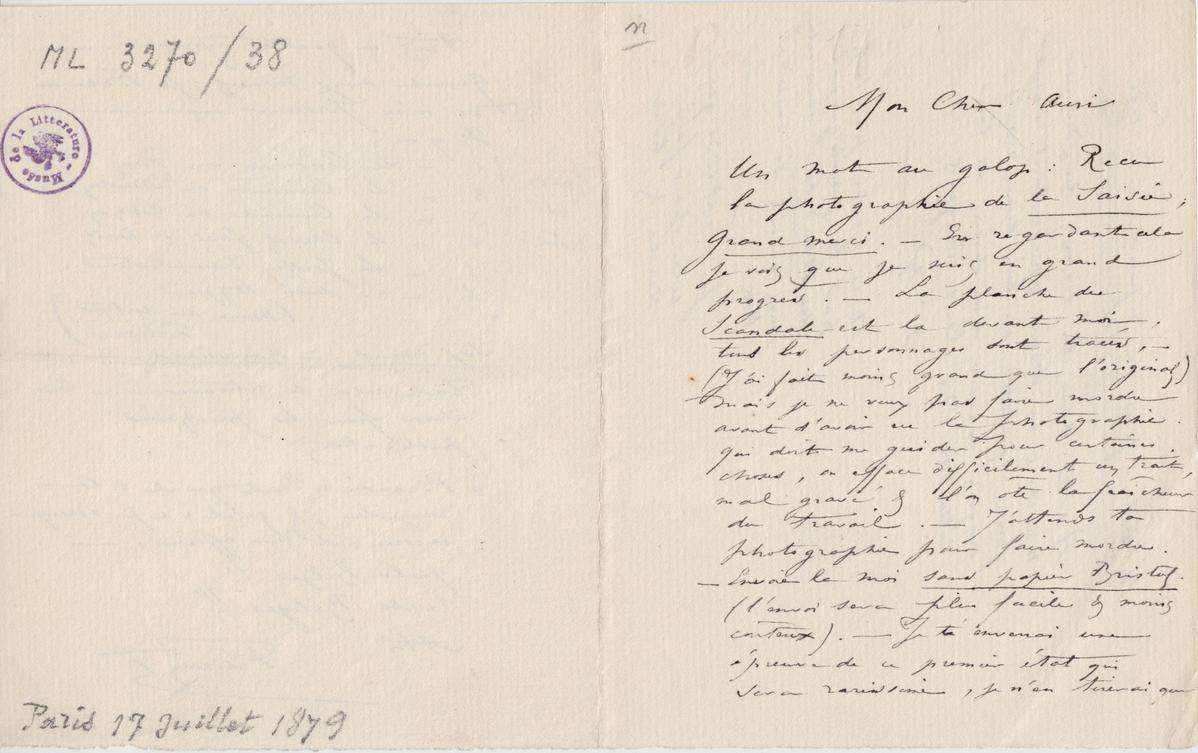 ML 3270/38
Musée de la Littérature
Paris 17 juillet 1879
n
Mon Cher Ami
Un mot au galop : Recu
la photographie de la Saisie,
Grand merci. — En regardant cela
je vois que je suis en grand
progres. — La planche du
Scandale est la devant moi,
tous les personnages sont tracés, —
(J'ai fait moins grand que l'original)
mais je ne veux pas faire mordre
avant d'avoir vu la photographie
qui doit me guider pour certaines
choses, on efface difficilement un trait,
mal gravé & l'on ote la fraicheur
du travail. — J'attends ta
photographie pour faire mordre.
— Envoie la moi sans papier Bristol.
(l'envoi sera plus facile & moins
couteux). — Je t'enverrai une
épreuve de ce premier état qui
sera rarissime, je n'en tirerai que